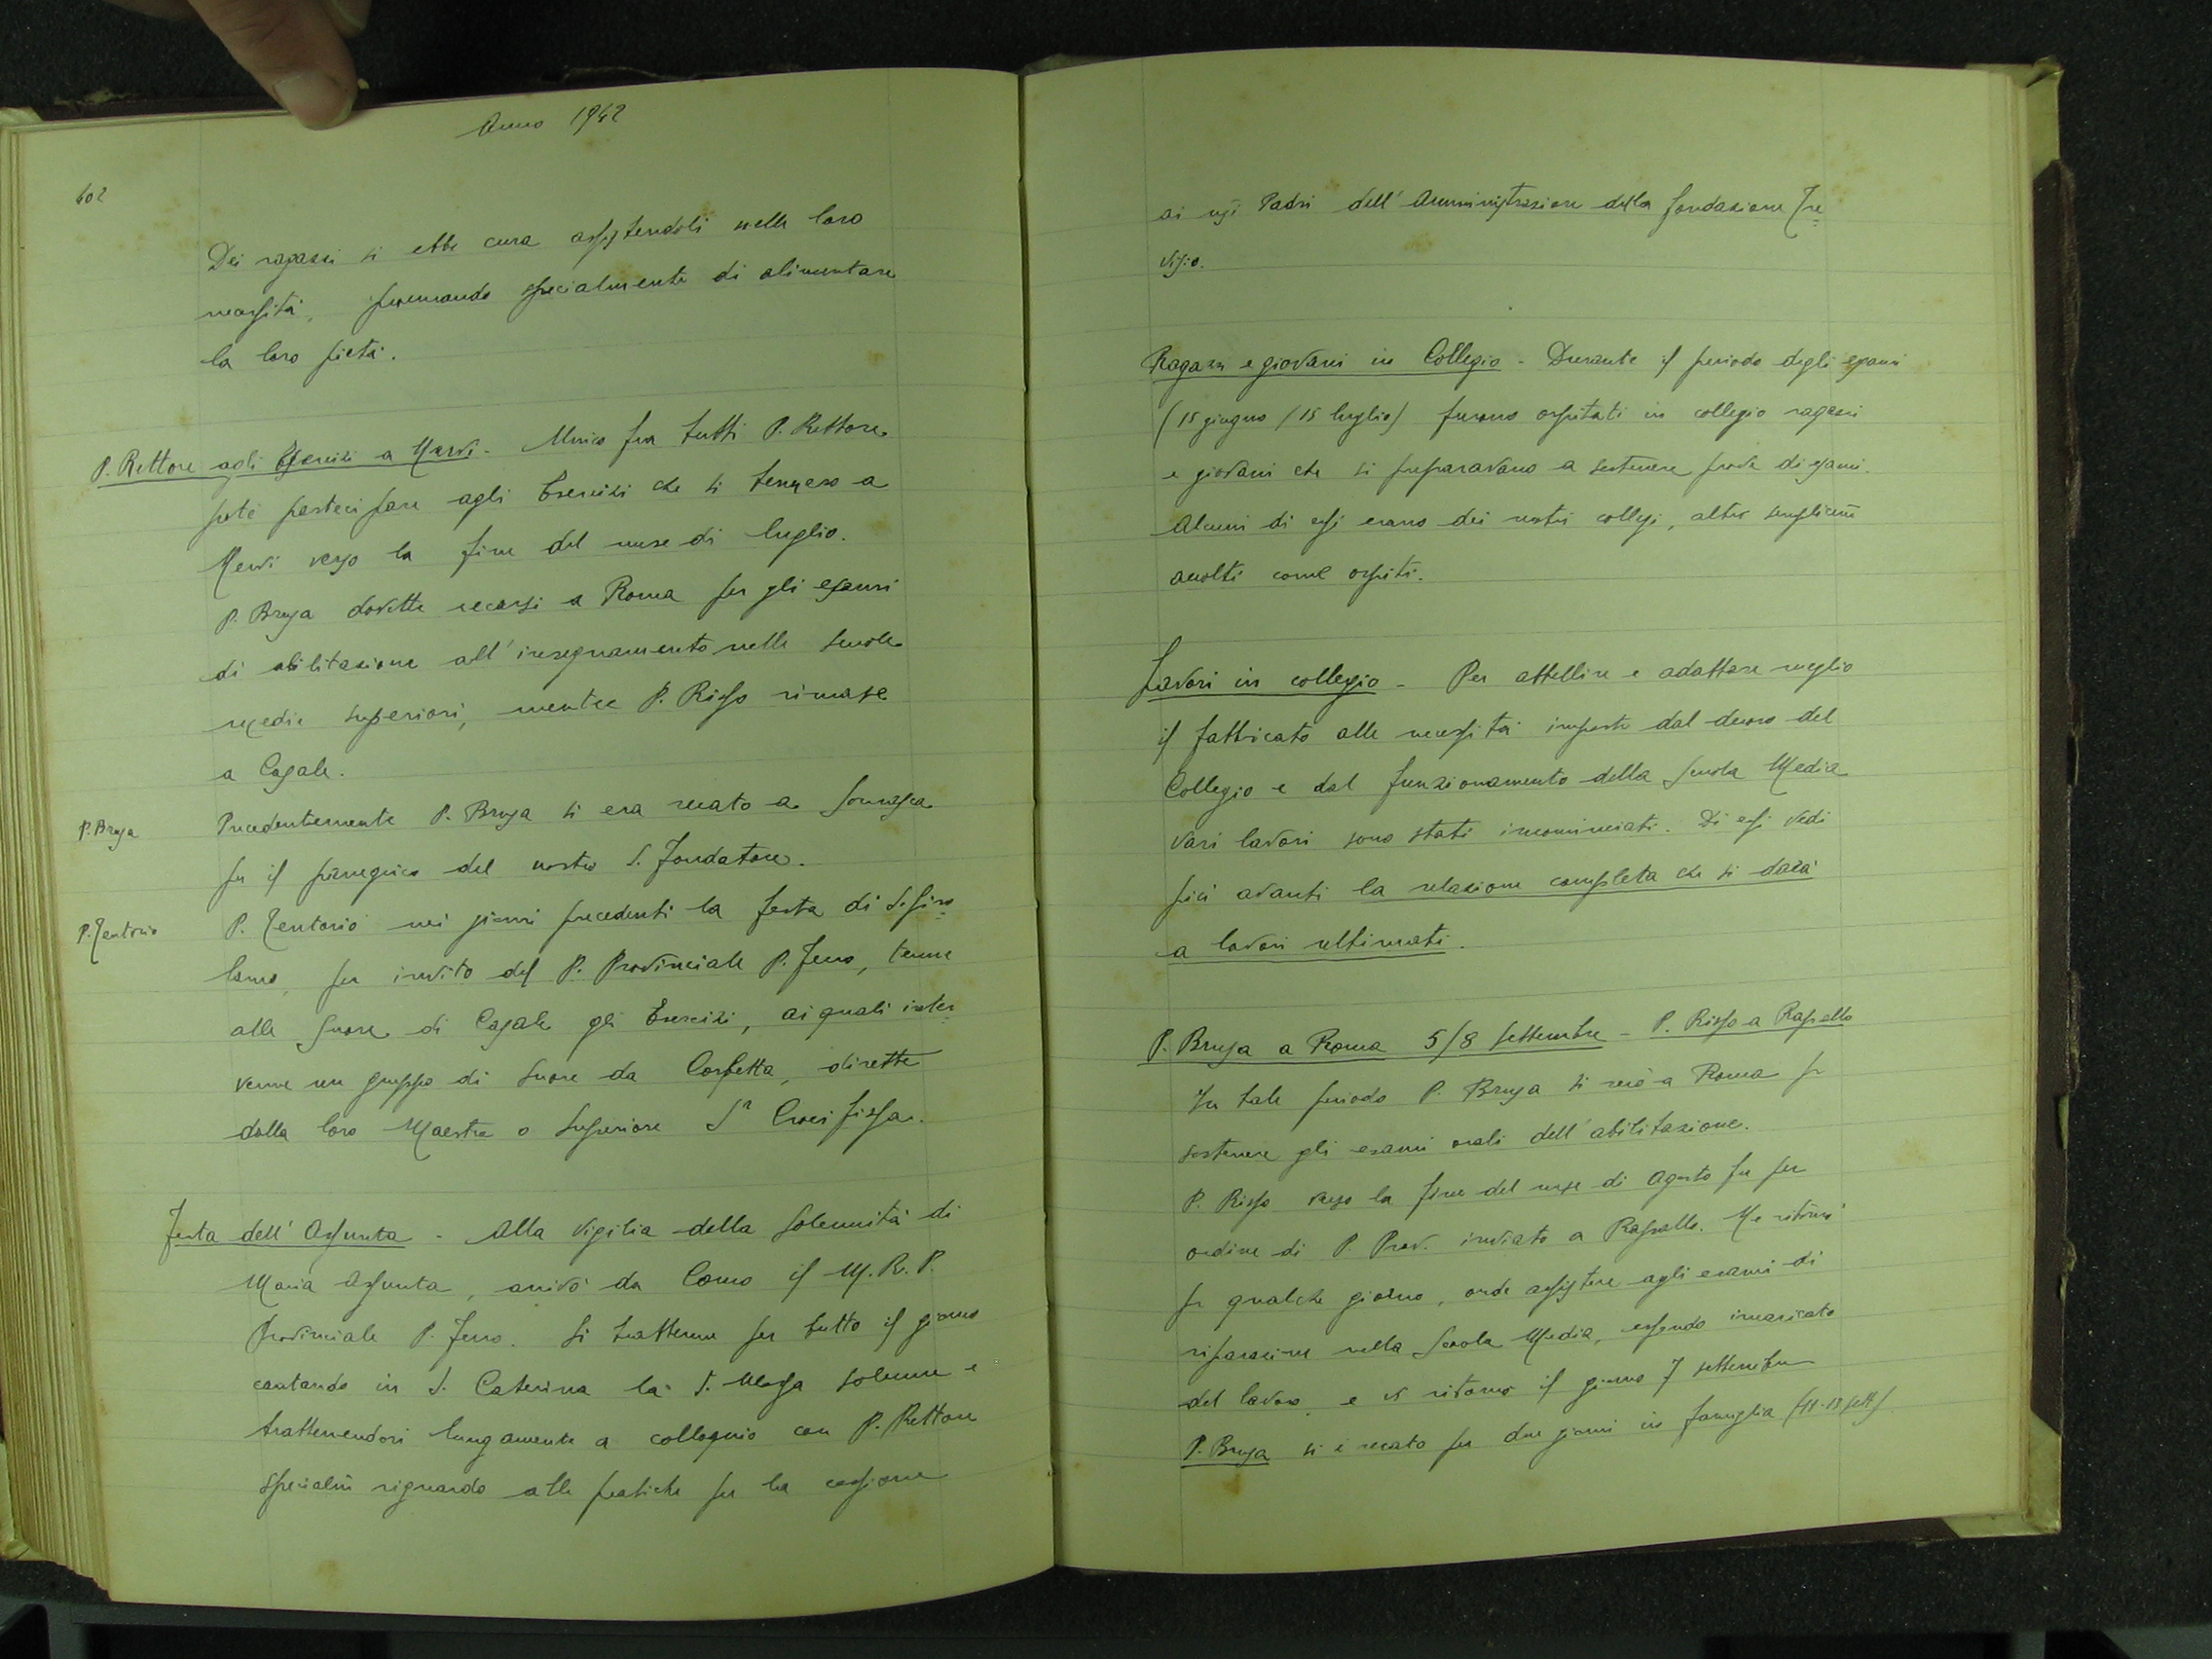 Anno 1942
102
Dei ragazzi si ebbe cura assistendoli nelle loro
necessità, premurando specialmente di alimentare
la loro pietà.
P. Rettore agli Esercizi a Nervi - Unico fra tutti P. Rettore
poté partecipare agli Esercizi che si tennero a
Nervi verso la fine del mese di luglio.
P. Brusa dovette recarsi a Roma per gli esami
di abilitazione all'insegnamento nelle scuole
medie superiori, mentre P. Risso rimase
a Casale.
P. Brusa
Precedentemente P. Brusa si era recato a Somasca
per il panegirico del nostro S. Fondatore.
P. Tentorio
P. Tentorio nei giorni precedenti la festa di S. Giro=
lamo, per invito del P. Provinciale P. Zeno, tenne
alle Suore di Casale gli Esercizi, ai quali inter
venne un gruppo di Suore da Corbetta, dirette
dalla loro Maestra o Superiore Sr Crocifissa.
Festa dell'Assunta - Alla Vigilia della Solennità di
Maria Assunta, arrivò da Como il M. R. P.
Provinciale P. Zeno. Si trattenne per tutto il giorno
cantando in S. Caterina la S. Messa solenne e
trattenendosi lungamente a colloquio con P. Rettore
specialm̃ riguardo alle pratiche per la cessione
ai Padri dell'Amministrazione della fondazione Tre
visio.
Ragazzi e giovani in Collegio - Durante il periodo degli esami
(15 giugno / 15 luglio) furono ospitati in collegio ragazzi
e giovani che si preparavano a sostenere prove di esami.
Alcuni di essi erano dei nostri collegi, altri semplicem̃
accolti come ospiti.
Lavori in collegio - Per abbellire e adattare meglio
il fabbricato alle necessità imposte dal decoro del
Collegio e dal funzionamento della Scuola Media
vari lavori sono stati incominciati. Di essi vedi
più avanti la relazione completa che si darà
a lavori ultimati.
P. Brusa a Roma 5/8 Settembre - P. Risso a Rapallo
In tale periodo P. Brusa si recò a Roma per
sostenere gli esami orali dell'abilitazione.
P. Risso verso la fine del mese di Agosto fu per
ordine di P. Prov. inviato a Rapallo. Ne ritornò
per qualche giorno, onde assistere agli esami di
riparazione nella Scuola Media, essendo incaricato
del lavoro, e vi ritornò il giorno 7 settembre
P. Brusa si è recato per due giorni in famiglia (11-13 sett)